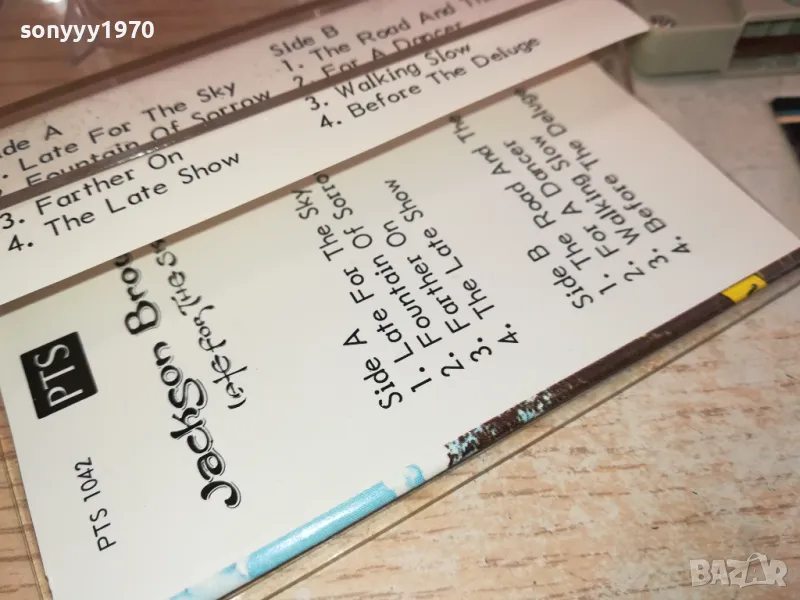 sonyyy1970
Side B
1. The Road And The
2. For A Dancer
3. Walking Slow
4. Before The Deluge
Late For The Sky
Fountain Of Sorrow
3. Farther On
4. The Late Show
PTS
PTS 1042
Jackson
Late For The Sky
Side A
1. Late For The Sky
2. Fountain Of Sorro
3. Farther On
4. The Late Show
Side B
1. The Road And The
2. For A Dancer
3. Walking Slow
4. Before The Deluge
BAZAR